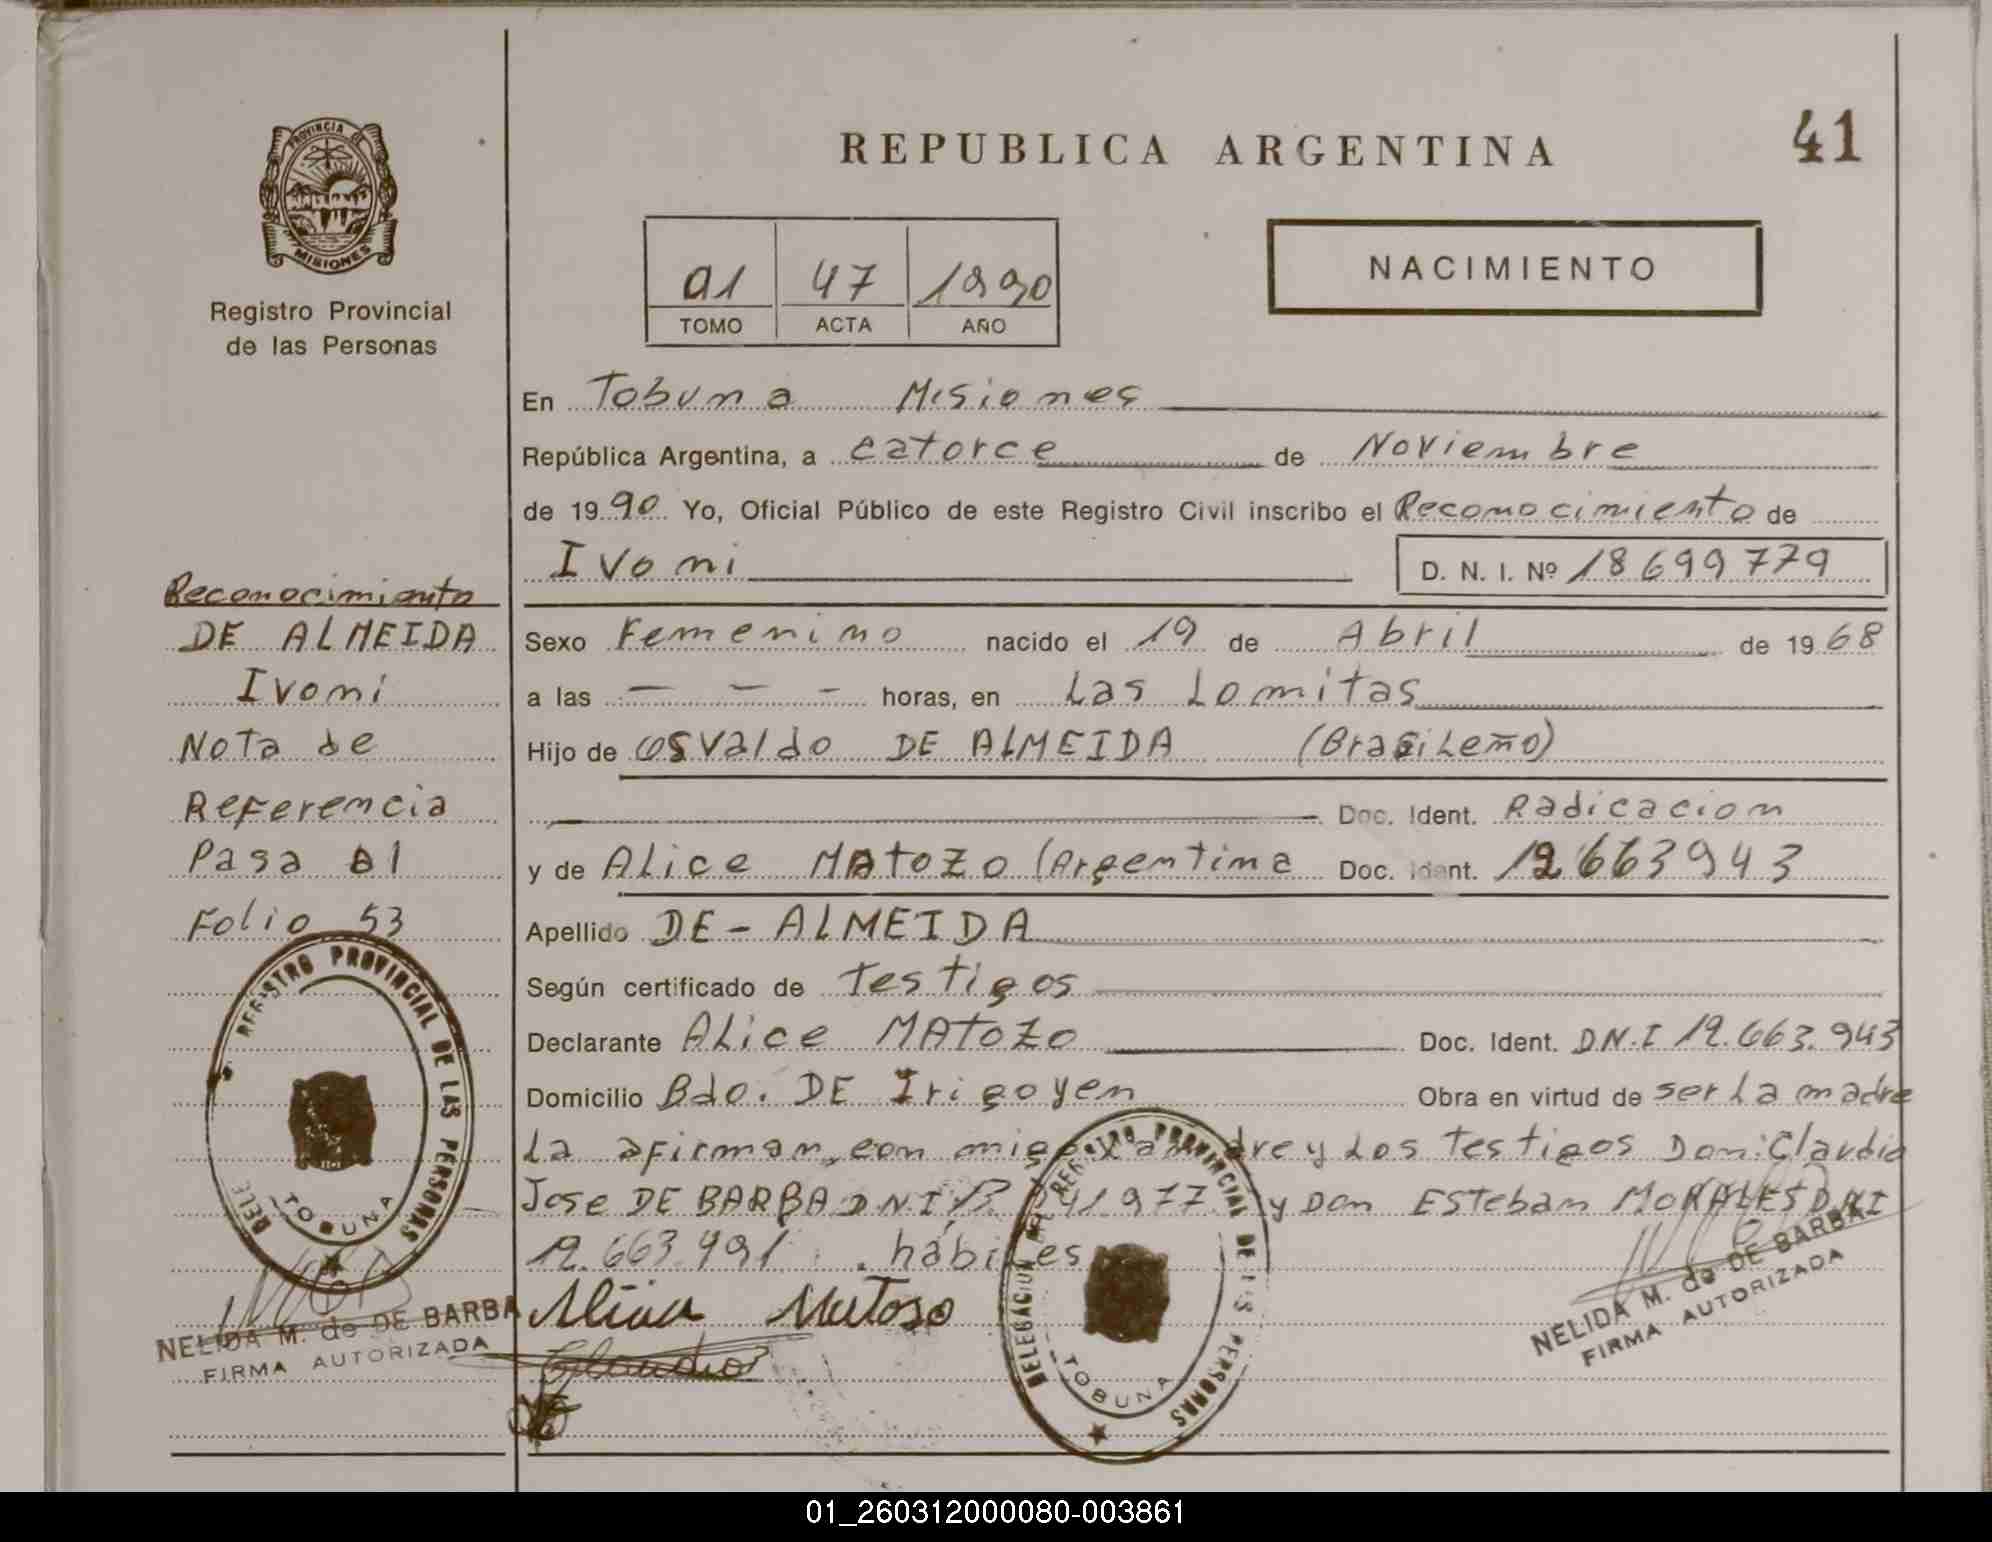 REPUBLICA ARGENTINA
41
PROVINCIA DE
MISIONES
Registro Provincial
de las Personas
01 47 1990
TOMO ACTA AÑO
NACIMIENTO
En Tobuna Misiones
República Argentina, a catorce de Noviembre
de 1990 Yo, Oficial Público de este Registro Civil inscribo el Reconocimiento de
Ivoni D. N. I. Nº 18699779
Sexo Femenino nacido el 19 de Abril de 1968
a las - - - horas, en Las Lomitas
Hijo de Osvaldo DE ALMEIDA (Brasileño)
Doc. Ident. Radicacion
y de Alice MATOZO (Argentina Doc. Ident. 12663943
Apellido DE - ALMEIDA
Según certificado de Testigos
Declarante Alice MATOZO Doc. Ident. D.N.I 12.663.943
Domicilio Bdo. DE Irigoyen Obra en virtud de ser La madre
La afirman, con migo La madre y Los Testigos Don: Claudio
Jose DE BARBA D.N.I 41.977 y Don Esteban MORALES D.N.I
12.663.991 . hábiles
Reconocimiento
DE ALMEIDA
Ivoni
Nota de
Referencia
Pasa al
Folio 53
REGISTRO PROVINCIAL DE LAS PERSONAS
DELE
TOBUNA
NELIDA M. de DE BARBA
FIRMA AUTORIZADA
Matoso
Claudio
DELEGACION DEL REGISTRO PROVINCIAL DE LAS PERSONAS
TOBUNA
NELIDA M. de DE BARBA
FIRMA AUTORIZADA
01_260312000080-003861